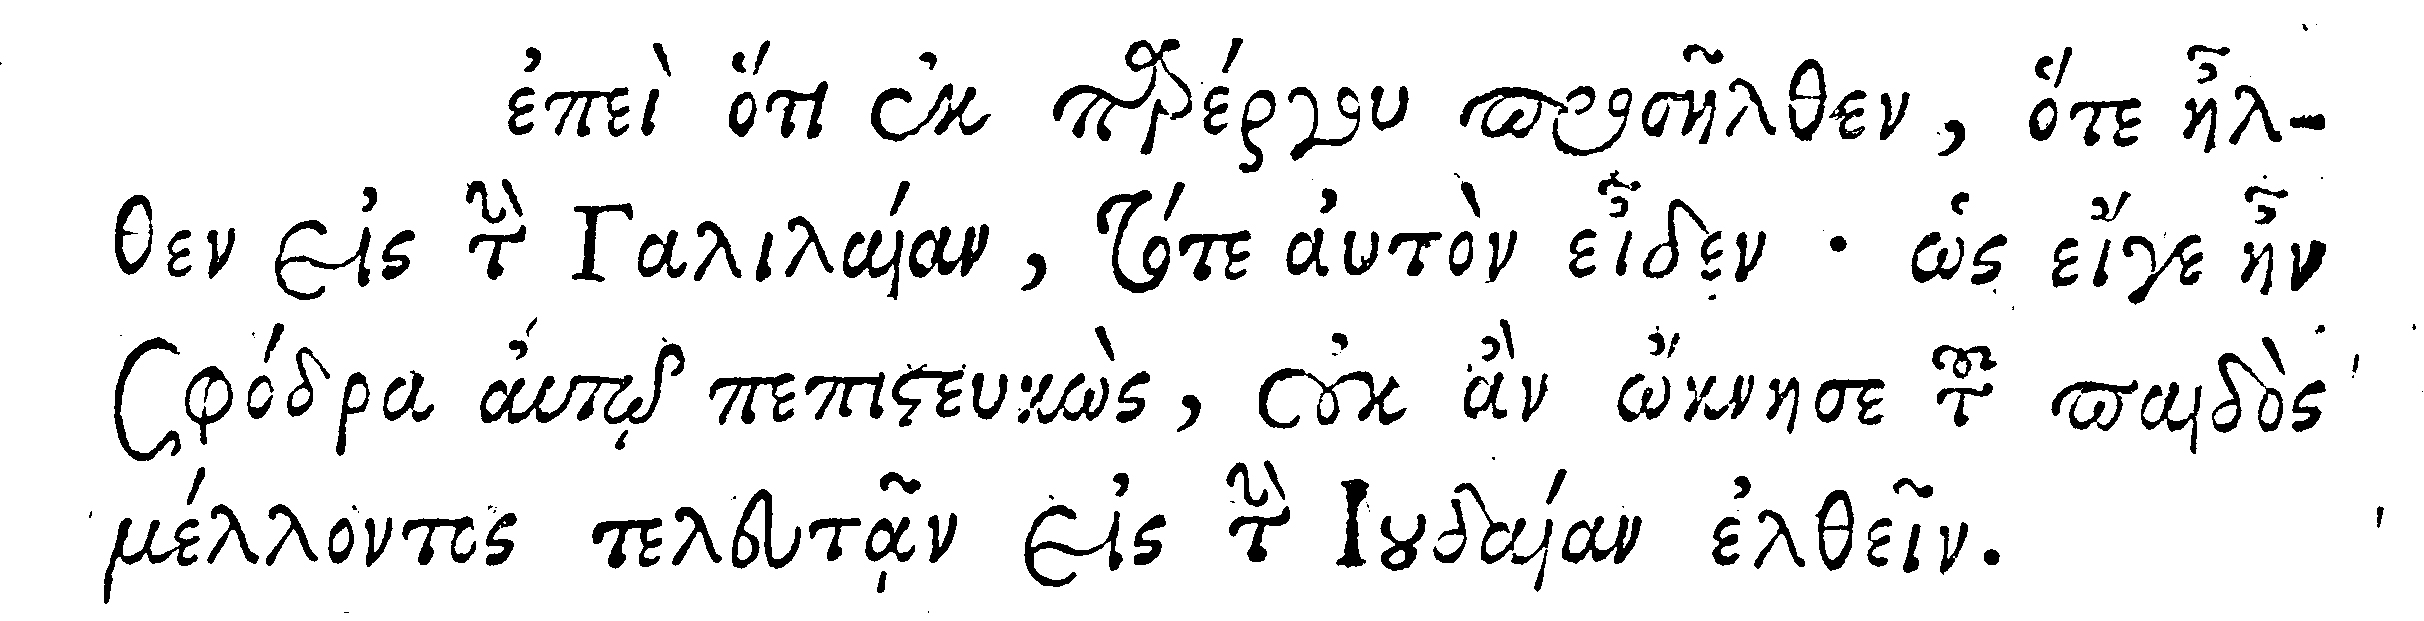 ἐπεὶ ὅτι ἐκ παρέργου προσῆλθεν, ὅτε ἦλ-
θεν εἰς τὴν Γαλιλαίαν, τότε αὐτὸν εἶδεν · ὡς εἴγε ἦν
σφόδρα αὐτῷ πεπιστευκὼς, οὐκ ἂν ὤκνησε τοῦ παιδὸς
μέλλοντος τελευτᾷν εἰς τὴν Ἰουδαίαν ἐλθεῖν.